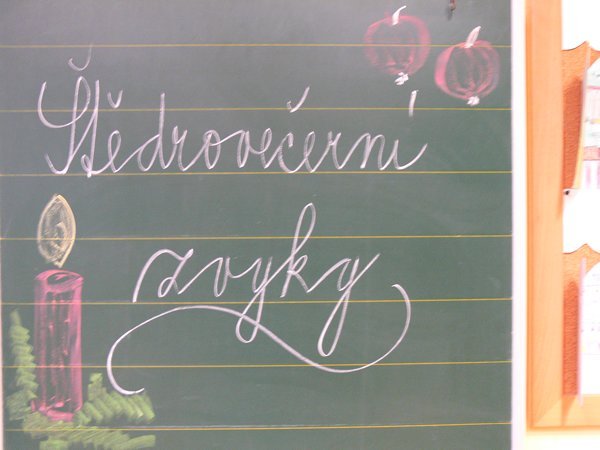 Štědrovečerní
zvyky